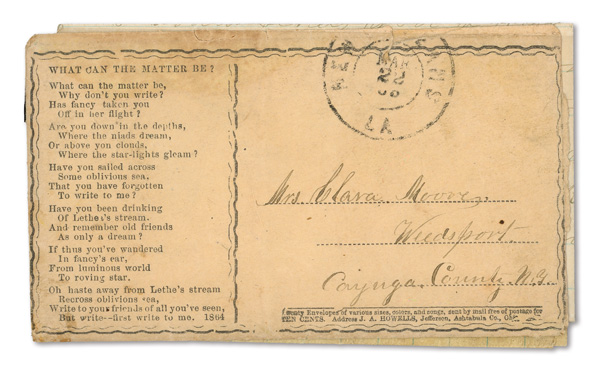 WHAT CAN THE MATTER BE?
What can the matter be,
Why don't you write?
Has fancy taken you
Off in her flight?
Are you down in the depths,
Where the niads dream,
Or above you clouds,
Where the star-lights gleam?
Have you sailed across
Some oblivious sea,
That you have forgotten
To write to me?
Have you been drinking
Of Lethe's stream.
And remember old friends
As only a dream?
If thus you've wandered
In fancy's ear,
From luminous world
To roving star.
Oh haste away from Lethe's stream
Recross oblivions sea,
Write to your friends of all you've seen,
But write--first write to me. 1864
NEW ORLEANS
MAR
22
LA
Mrs. Clara Moore,
Weedsport.
Cayuga County N.Y.
Fancy Envelopes of various sizes, colors, and songs, sent by mail free of postage for
TEN CENTS. Address J. A. HOWELLS, Jefferson, Ashtabula Co.,